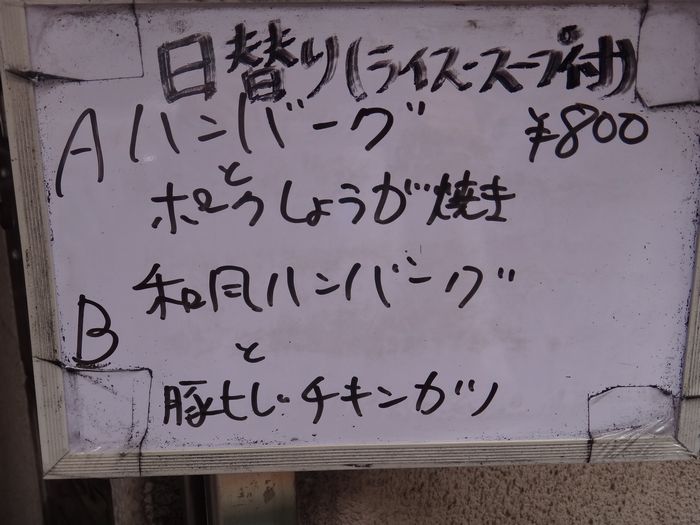 日替り(ライス・スープ付)
A ハンバーグ ¥800
と
ポークしょうが焼き
B 和風ハンバーグ
と
豚ヒレ・チキンカツ